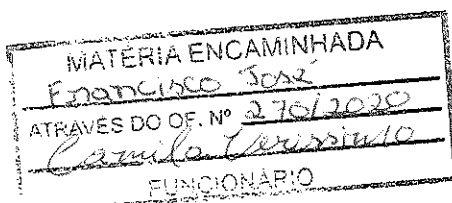 MATÉRIA ENCAMINHADA
Francisco José
ATRAVÉS DO OF. Nº 270/2020
Camila Verissimo
FUNCIONÁRIO